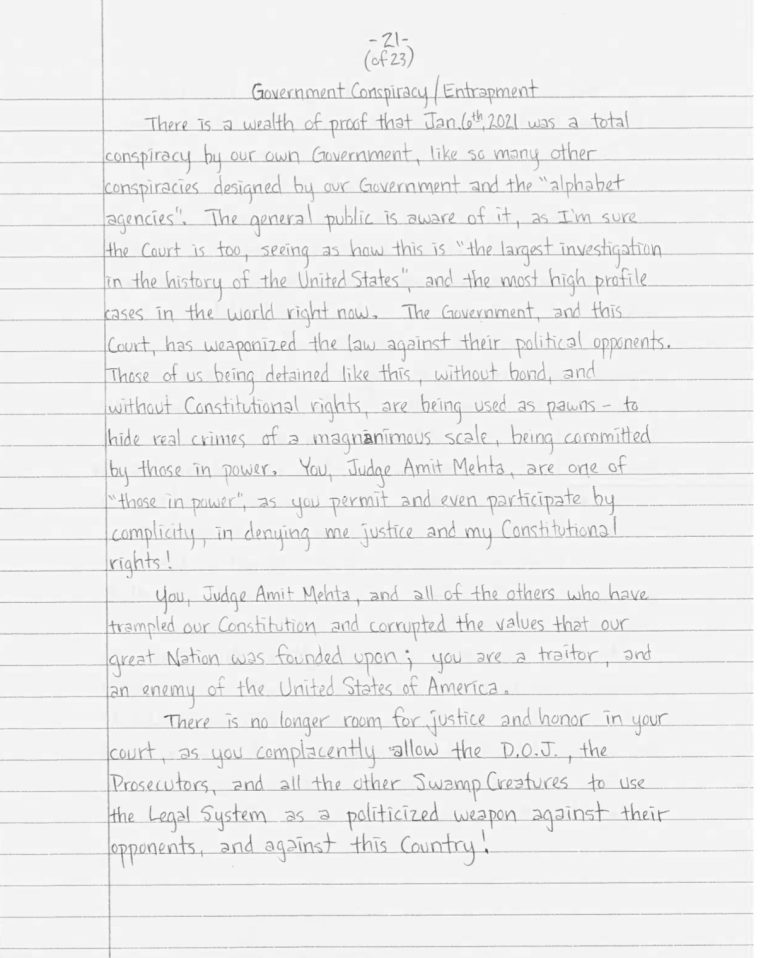 -21-
(of 23)
Government Conspiracy/Entrapment
There is a wealth of proof that Jan. 6th, 2021 was a total
conspiracy by our own Government, like so many other
conspiracies designed by our Government and the "alphabet
agencies". The general public is aware of it, as I'm sure
the Court is too, seeing as how this is "the largest investigation
in the history of the United States", and the most high profile
cases in the world right now. The Government, and this
Court, has weaponized the law against their political opponents.
Those of us being detained like this, without bond, and
without Constitutional rights, are being used as pawns - to
hide real crimes of a magnanimous scale, being committed
by those in power. You, Judge Amit Mehta, are one of
"those in power", as you permit and even participate by
complicity, in denying me justice and my Constitutional
rights!
You, Judge Amit Mehta, and all of the others who have
trampled our Constitution and corrupted the values that our
great Nation was founded upon; you are a traitor, and
an enemy of the United States of America.
There is no longer room for justice and honor in your
court, as you complacently allow the D.O.J., the
Prosecutors, and all the other Swamp Creatures to use
the Legal System as a politicized weapon against their
opponents, and against this Country!